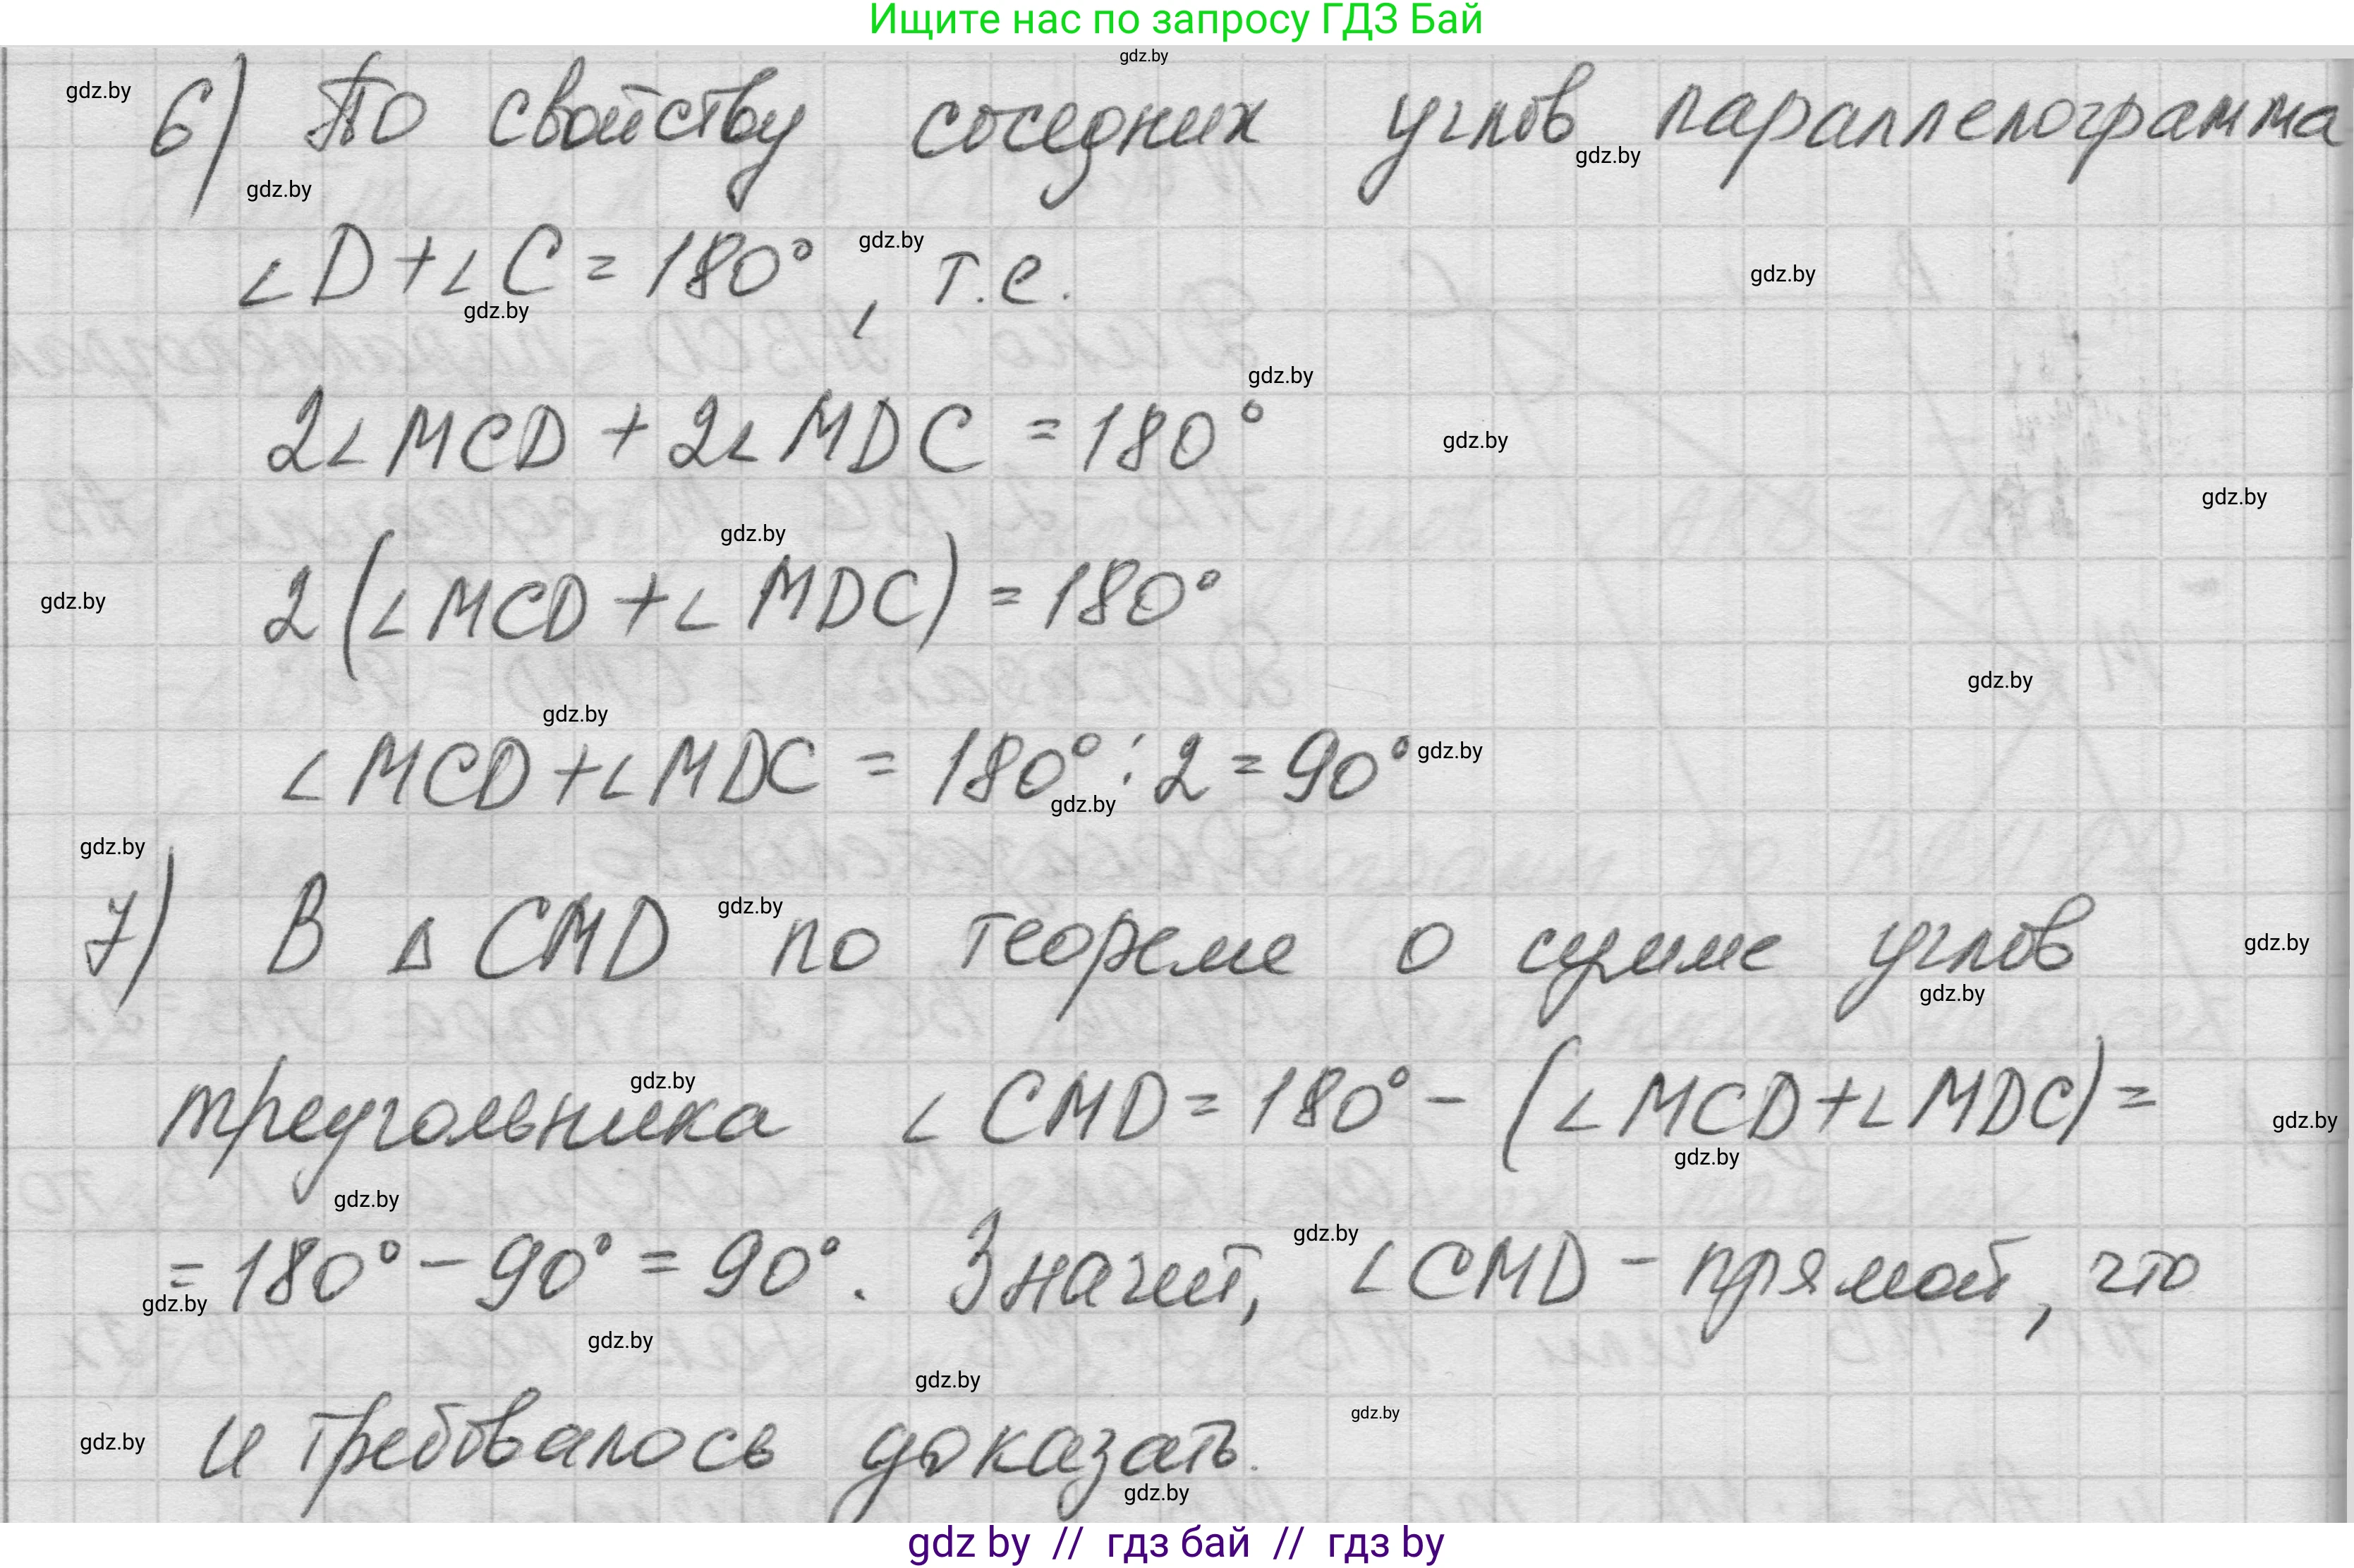 Ищите нас по запросу ГДЗ Бай
gdz.by
gdz.by
6) По свойству соседних углов параллелограмма
gdz.by
gdz.by
∠D+∠C=180°, т.е.
gdz.by
gdz.by
gdz.by
gdz.by
2∠MCD + 2∠MDC = 180°
gdz.by
gdz.by
gdz.by
2(∠MCD+∠MDC) = 180°
gdz.by
gdz.by
gdz.by
∠MCD+∠MDC = 180°:2=90°
gdz.by
gdz.by
gdz.by
7) В ΔCMD по теореме о сумме углов
gdz.by
gdz.by
gdz.by
треугольника ∠CMD=180°-(∠MCD+∠MDC)=
gdz.by
gdz.by
gdz.by
gdz.by
=180°-90°=90°. Значит, ∠CMD - прямой, что
gdz.by
gdz.by
gdz.by
gdz.by
и требовалось доказать.
gdz.by
gdz.by
gdz.by
gdz by // гдз бай // гдз by